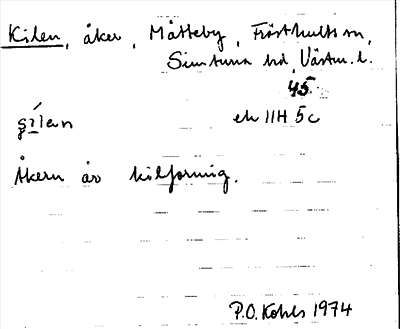 Kilen, åker, Måtteby, Frösthults sn,
Simtuna hd, Västm. l.
45.
çílan
ek 11H 5c
Åkern är kilformig.
P.O. Kohls 1974